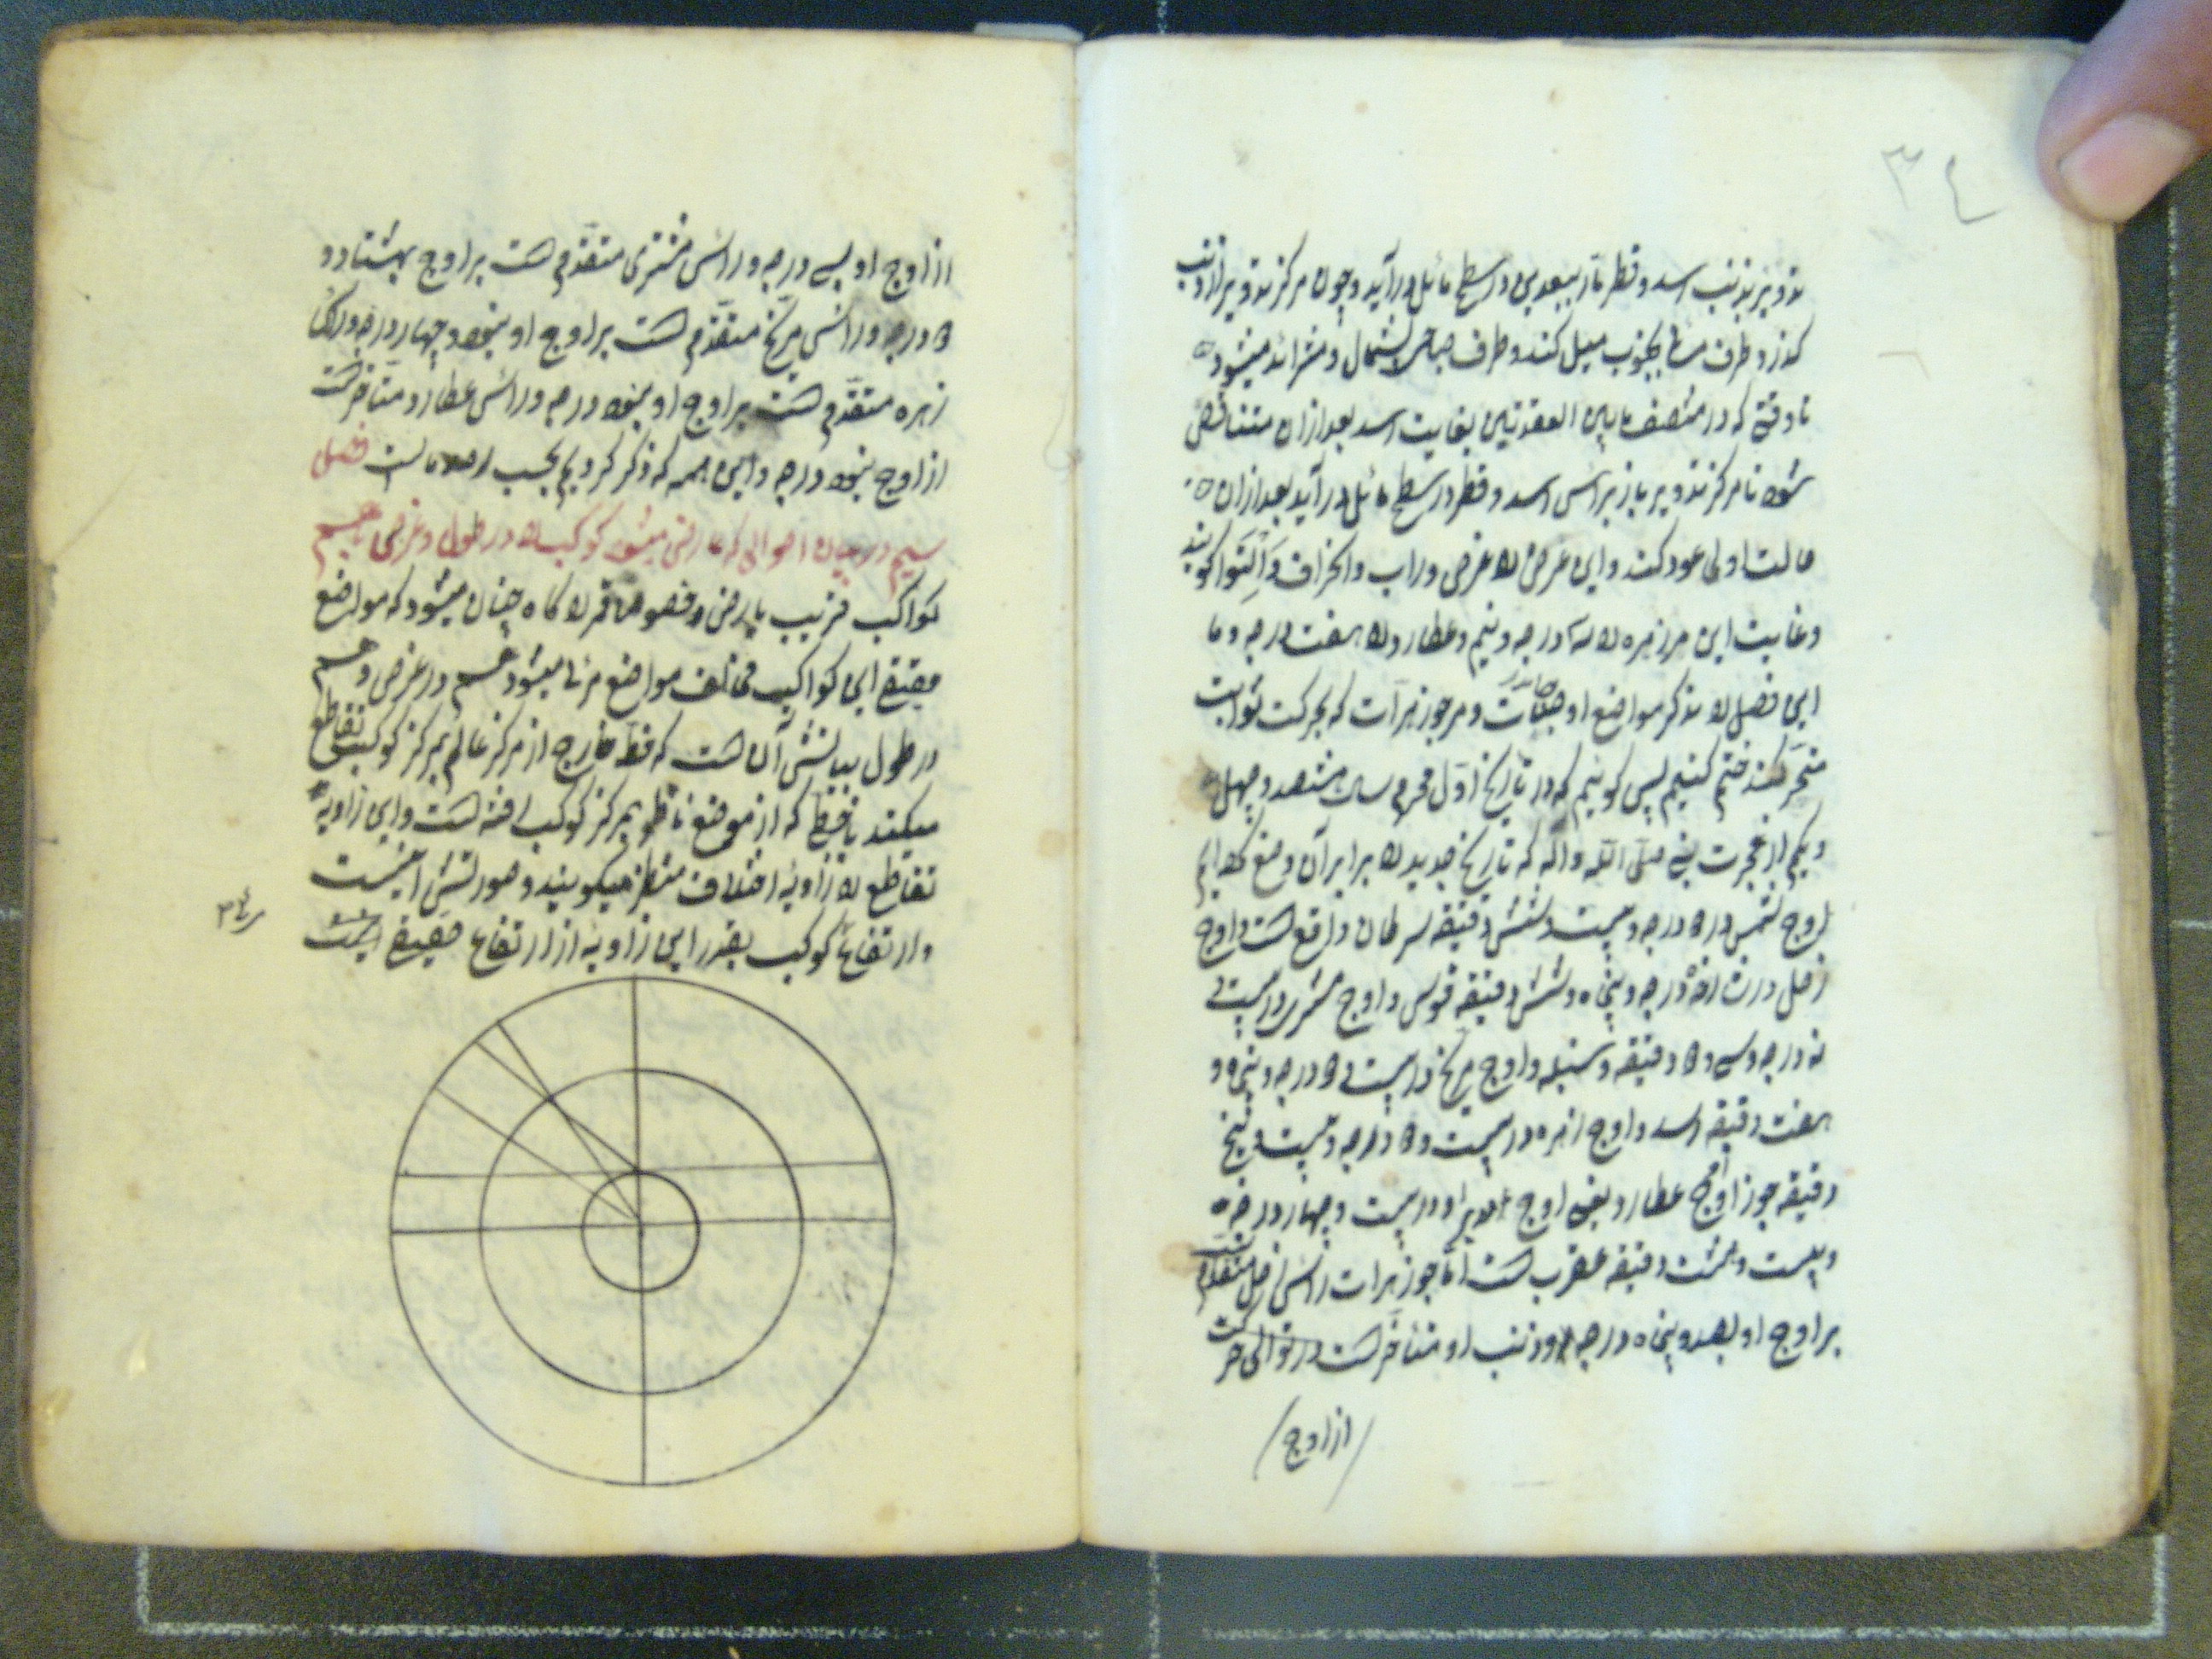 ٣٤
تدویر بذنب رسد و قطر مار ببعدین در سطح مائل درآید و چون مرکز تدویر از ذنب
گذرد طرف مسائی بجنوب میل کند و طرف صباحی بشمال و متزائد میشود
تا وقتی که در منتصف مابین العقدتین بغایت رسد بعد ازان متناقص
شود تا مرکز تدویر باز براس رسد و قطر در سطح مائل درآید بعد ازان
حالت اولی عود کند و این عرض را عرض وراب و انحراف و التوا گویند
و غایت این مر زهره را درجه و نیم و عطارد را هفت درجه و ما
این فصل را بذکر مواضع اوجات و مر جوزهرات که بحرکت ثوابت
متحرکند ختم کنیم پس گوییم که در تاریخ اول محرم سال هشتصد و چهل
و یکم از هجرت نبی صلی الله و آله که تاریخ جدید را برابر آن وضع کرده‌ایم
اوج شمس در درجه و بیست و شش دقیقه سرطان واقع هست و اوج
زحل در درجه و پنجاه و شش دقیقه قوس و اوج مشتری در بیست و
نه درجه و سی و دقیقه سنبله و اوج مریخ در بیست و درجه و پنجاه و
هفت دقیقه اسد و اوج زهره در بیست و درجه و بیست و پنج
دقیقه جوزا و اوج عطارد یعنی اوج مدیر او در بیست و چهار درجه
و بیست و هشت دقیقه عقرب هست اما جوزهرات راس زحل متقدم هست
بر اوج او بصد و پنجاه درجه و ذنب او متاخر هست در توالی حرکت
/ از اوج /
از اوج او بسی درجه و راس مشتری متقدم هست بر اوج بهشتاد و
درجه و راس مریخ متقدم هست بر اوج او بنود و چهار درجه و راس
زهره متقدم هست بر اوج او بنود درجه و راس عطارد متاخر هست
از اوج بنود درجه و این همه که ذکر کردیم بحسب رصد ماست فصل
سیم در بیان احوالی که عارض میشود کواکب را در طول و عرض
کواکب قریب بارض و خصوصا قمر را گاه چنان میشود که مواضع
حقیقی این کواکب مخالف مواضع مرئی میشود هم در عرض و هم
در طول بیانش آن هست که خط خارج از مرکز عالم بمرکز کوکب تقاطع
میکند با خطی که از موضع ناظر بمرکز کوکب رفته هست و این زاویه
تقاطع را زاویه اختلاف منظر میگویند و صورتش اینست
و ارتفاع کوکب بقدر این زاویه از ارتفاع حقیقی